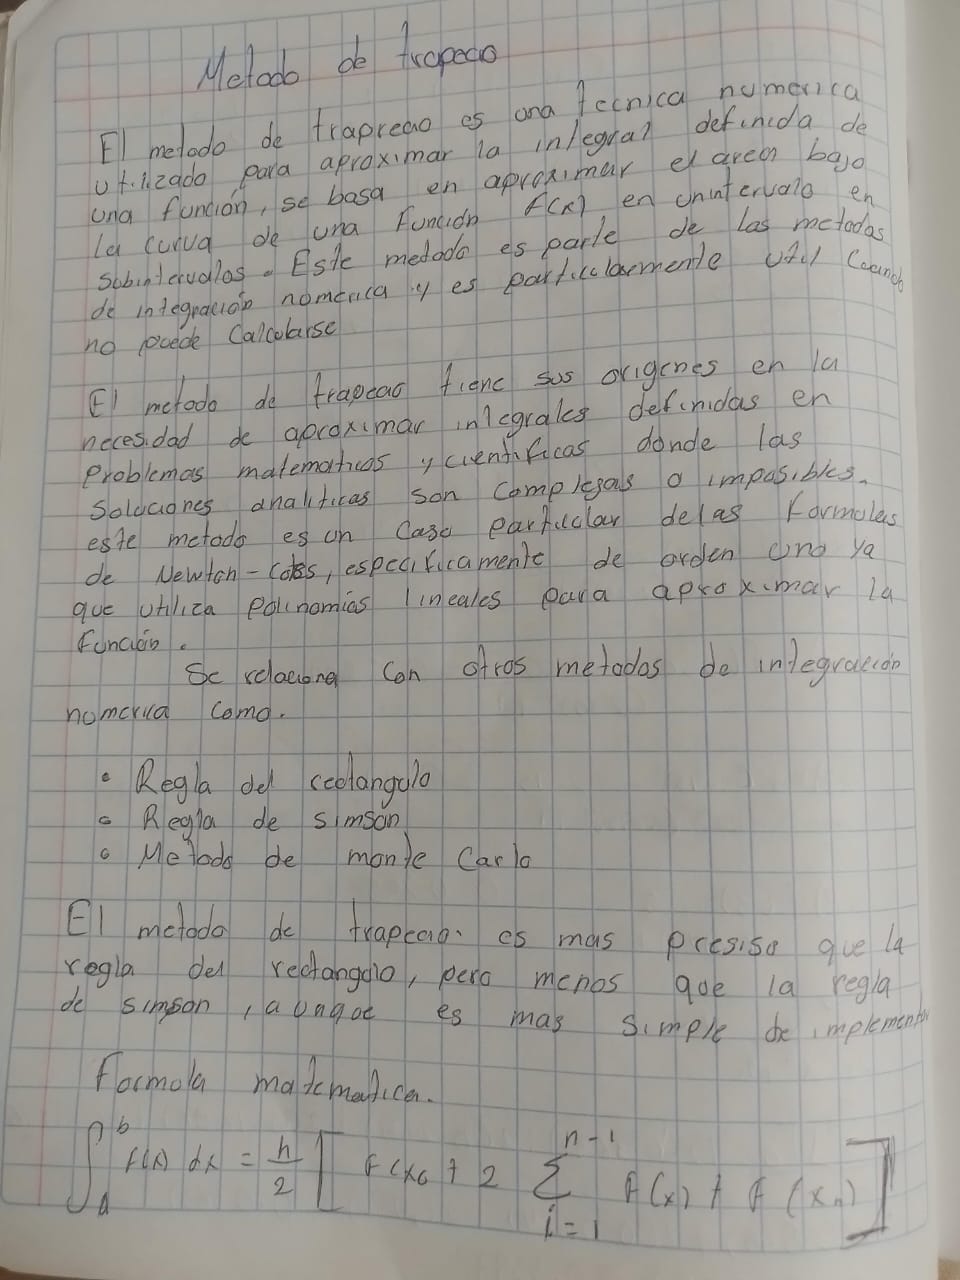 Metodo de trapecio
El metodo de trapreao es una tecnica numerica
utilizado para aproximar la integral definida de
una función, se basa en aproximar el area bajo
la curva de una función f(x) en un intervalo en
subintervalos. Este metodo es parte de las metodos
de integración numerica y es particularmente util cuando
no puede calcularse
El metodo de trapecio tiene sus origenes en la
necesidad de aproximar integrales definidas en
problemas matematicos y cientificas donde las
soluciones analiticas son complejas o imposibles.
este metodo es un caso particular de las formulas
de Newton-Cotes, especificamente de orden uno ya
que utiliza polinomios lineales para aproximar la
función.
Se relaciona con otros metodos de integración
numerica como.
• Regla del rectangulo
• Regla de simson
• Metodo de monte Carlo
El metodo de trapecio es mas presiso que la
regla del rectangulo, pero menos que la regla
de simson, aunque es mas simple de implementar
formula matematica.
∫_a^b f(x) dx = h/2 [ f(x₀ + 2 ∑_{i=1}^{n-1} f(x) + f(xₙ) ]